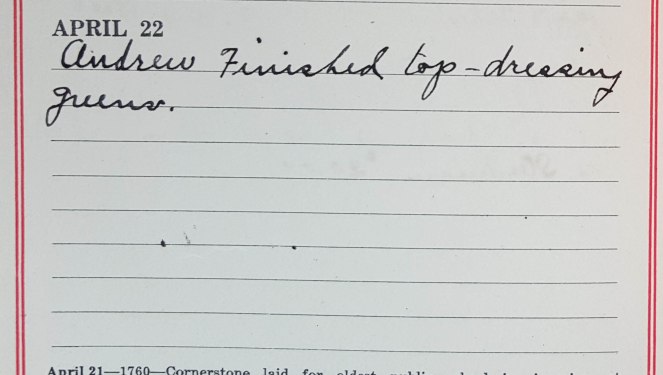 APRIL 22
Andrew Finished top-dressing
greens.
April 21—1760—Cornerstone laid for oldest